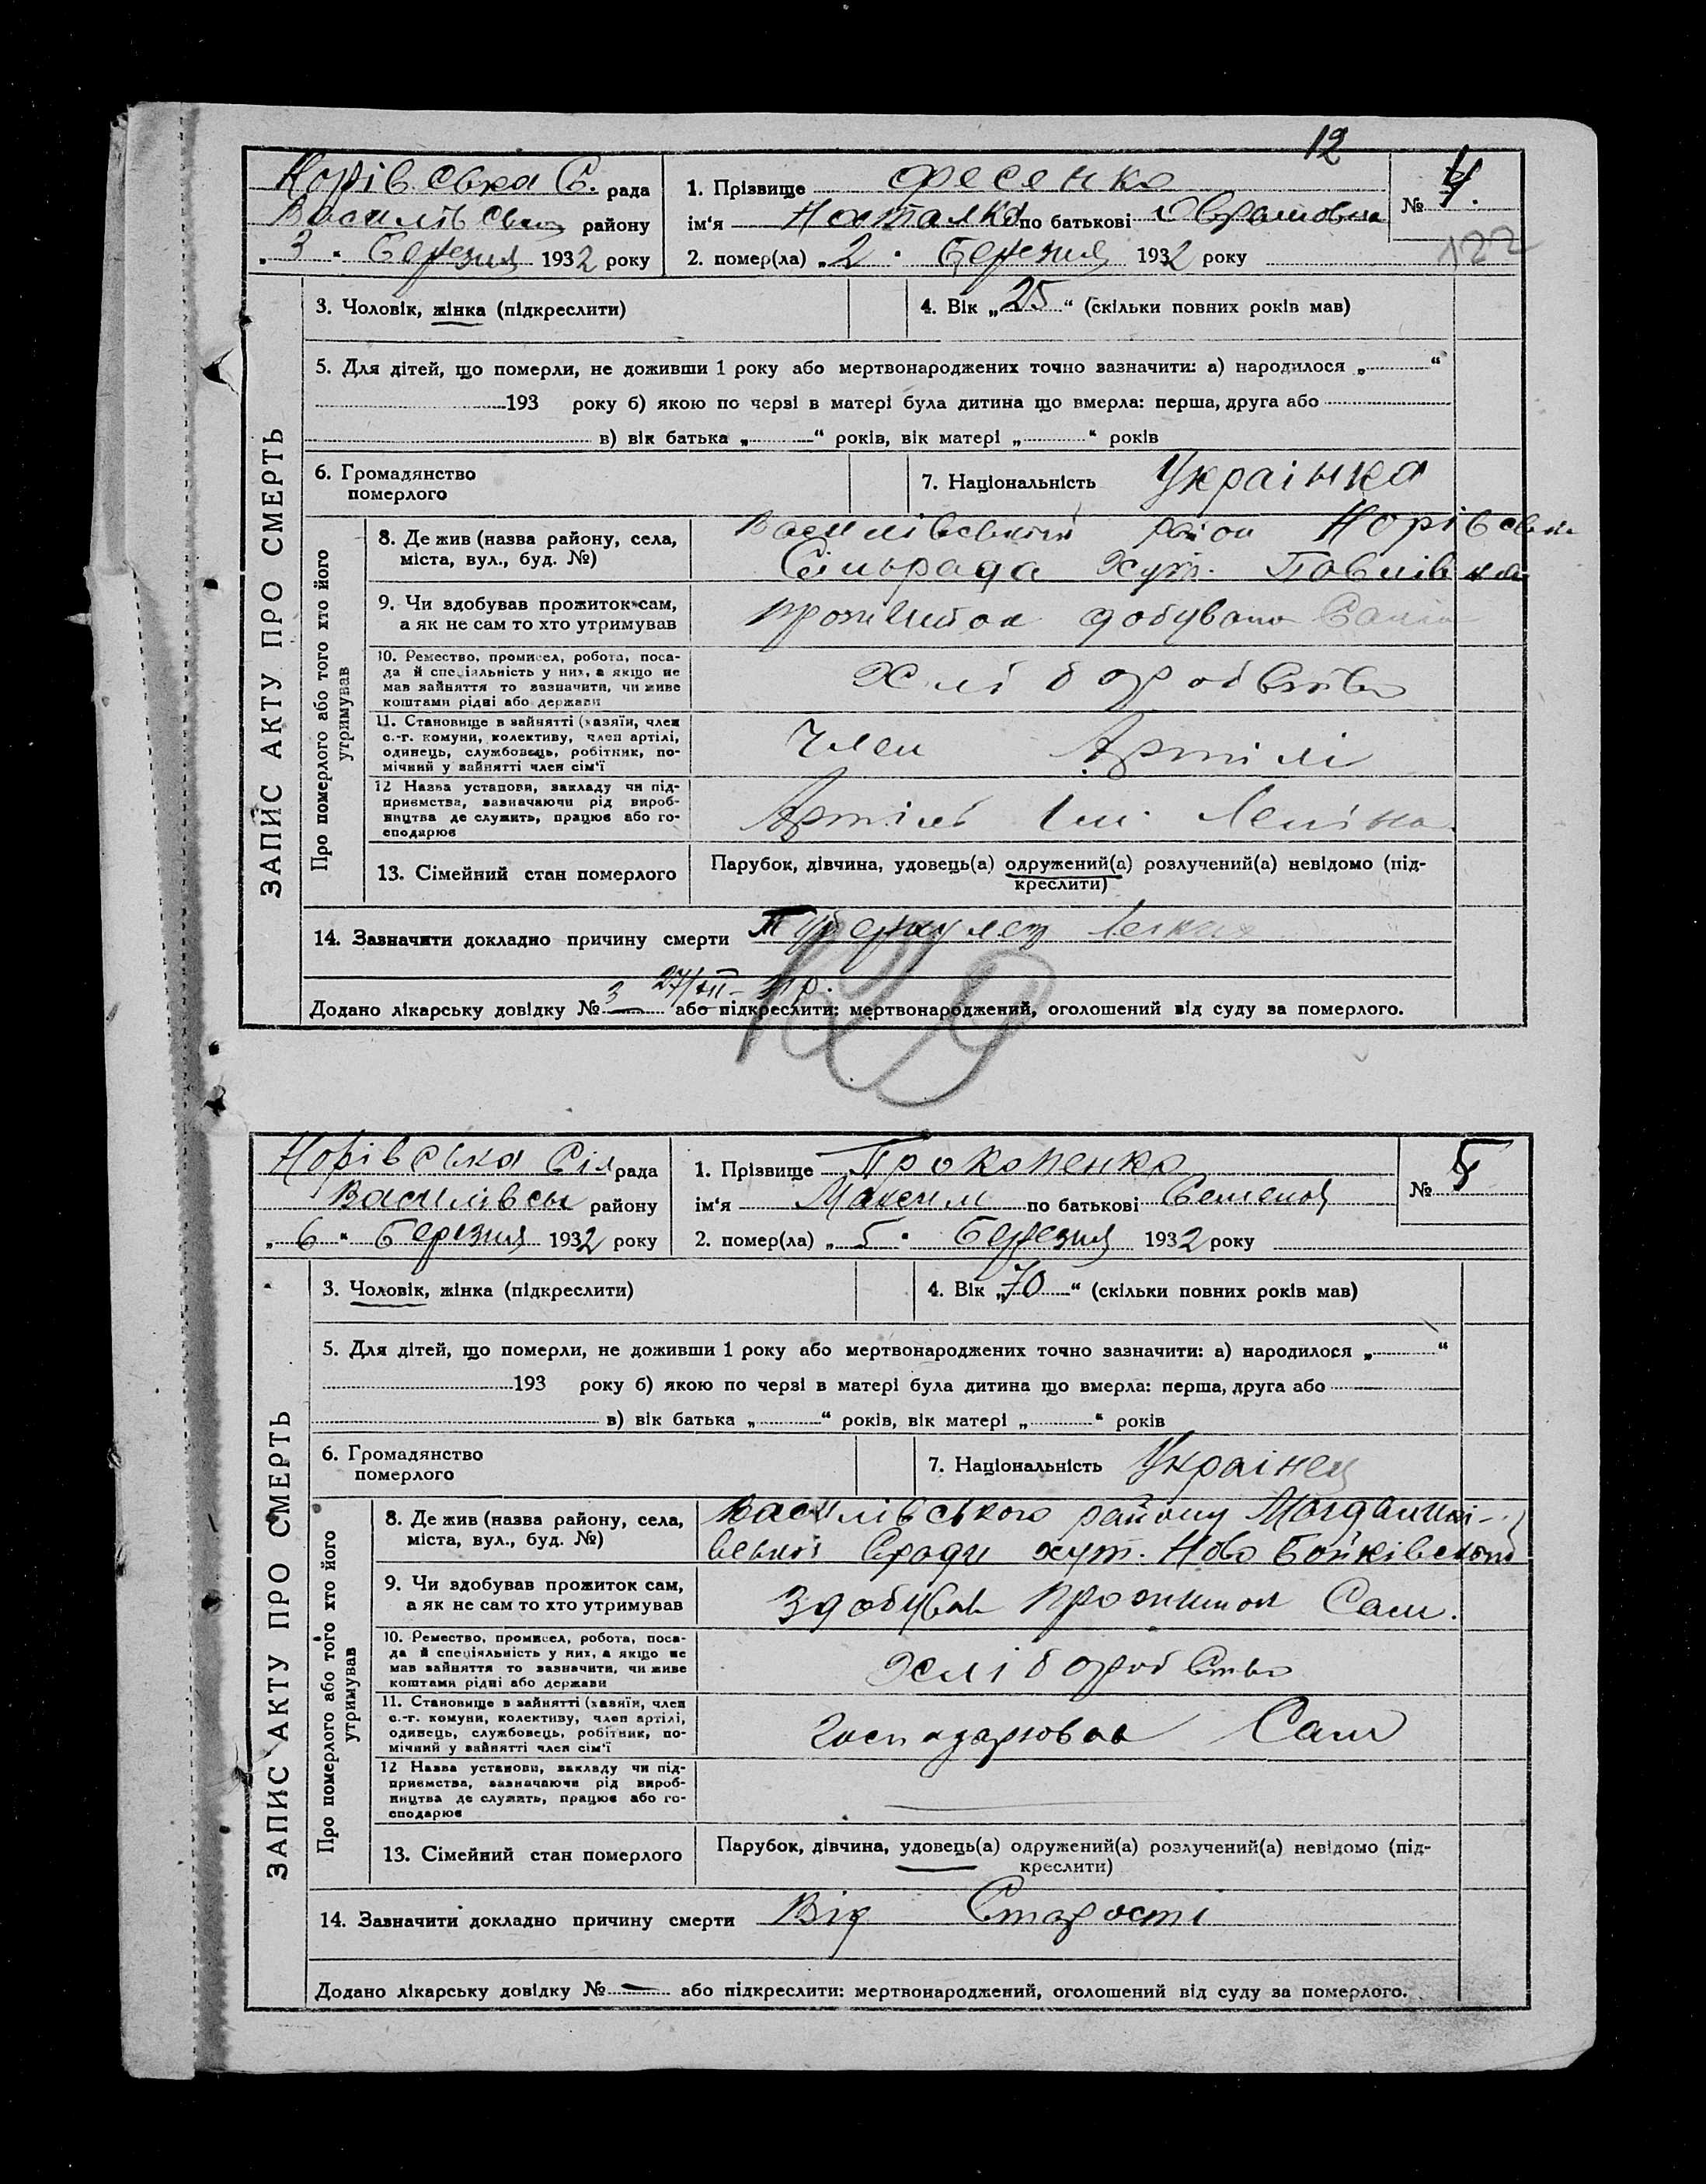 12
Норівська С. рада
Василівськ району
„ 3 " Березня 1932 року
1. Прізвище Фесенко
ім'я Наталка по батькові Оврамовна
2. помер(ла) „ 2 " Березня 1932 року
№ 4.
122
ЗАПИС АКТУ ПРО СМЕРТЬ
3. Чоловік, жінка (підкреслити)
4. Вік „ 25 “ (скільки повних років мав)
5. Для дітей, що померли, не доживши 1 року або мертвонароджених точно зазначити: а) народилося „ “
193 року б) якою по черзі в матері була дитина що вмерла: перша, друга або
в) вік батька „ “ років, вік матері „ “ років
6. Громадянство
померлого
7. Національність Українка
Про померлого або того хто його
утримував
8. Де жив (назва району, села,
міста, вул., буд. №)
Василівський район Норівська
Сільрада Хут. Павлівка
9. Чи здобував прожиток сам,
а як не сам то хто утримував
прожиток добувала Сама
10. Ремество, промисел, робота, поса-
да й спеціяльність у них, а якщо не
мав зайняття то зазначити, чи живе
коштами рідні або держави
Хліборобство
11. Становище в зайнятті (хазяїн, член
с.-г. комуни, колективу, член артілі,
одинець, службовець, робітник, по-
мічний у зайнятті член сім'ї
Член Артілі
12 Назва установи, закладу чи під-
приємства, зазначаючи рід вироб-
ництва де служить, працює або го-
сподарює
Артіль Ім. Леніна
13. Сімейний стан померлого
Парубок, дівчина, удовець(а) одружений(а) розлучений(а) невідомо (під-
креслити)
14. Зазначити докладно причину смерти Туберкулез легких
Додано лікарську довідку № 3 або підкреслити: мертвонароджений, оголошений від суду за померлого.
Норівська Сіл рада
Василівськ району
„ 6 " Березня 1932 року
1. Прізвище Прокопенко
ім'я Максим по батькові Семенов
2. помер(ла) „ 5 " Березня 1932 року
№ 5
ЗАПИС АКТУ ПРО СМЕРТЬ
3. Чоловік, жінка (підкреслити)
4. Вік „ 70 “ (скільки повних років мав)
5. Для дітей, що померли, не доживши 1 року або мертвонароджених точно зазначити: а) народилося „ “
193 року б) якою по черзі в матері була дитина що вмерла: перша, друга або
в) вік батька „ “ років, вік матері „ “ років
6. Громадянство
померлого
7. Національність Українец
Про померлого або того хто його
утримував
8. Де жив (назва району, села,
міста, вул., буд. №)
Василівського району
Сради хут. Ново Бойківський
9. Чи здобував прожиток сам,
а як не сам то хто утримував
Здобував прожиток Сам.
10. Ремество, промисел, робота, поса-
да й спеціяльність у них, а якщо не
мав зайняття то зазначити, чи живе
коштами рідні або держави
Хліборобство
11. Становище в зайнятті (хазяїн, член
с.-г. комуни, колективу, член артілі,
одинець, службовець, робітник, по-
мічний у зайнятті член сім'ї
Господарював Сам
12 Назва установи, закладу чи під-
приємства, зазначаючи рід вироб-
ництва де служить, працює або го-
сподарює
13. Сімейний стан померлого
Парубок, дівчина, удовець(а) одружений(а) розлучений(а) невідомо (під-
креслити)
14. Зазначити докладно причину смерти Від Старости
Додано лікарську довідку № — або підкреслити: мертвонароджений, оголошений від суду за померлого.